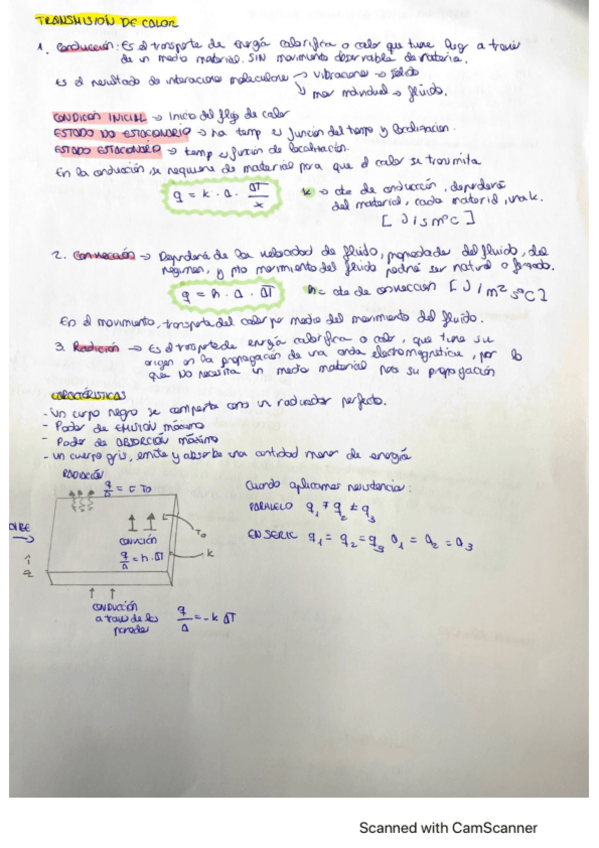 TRANSMISIÓN DE CALOR
1. Conducción: Es el transporte de energía calorífica o calor que tiene lugar a través
de un medio material. SIN movimiento observable de materia.
Es el resultado de interacciones moleculares → vibraciones → sólido
↳ mov individual → fluido.
CONDICIÓN INICIAL → Inicio del flujo de calor
ESTADO NO ESTACIONARIO → na temp es función del tiempo y localización.
ESTADO ESTACIONARIO → temp es función de localización.
En la conducción, se requiere de material para que el calor se transmita
q = k · A · ΔT / x
k → cte de conducción, dependerá
del material, cada material, una k.
[ J / s m ºC ]
2. Convección → Dependerá de la velocidad de fluido, propiedades del fluido, del
régimen, y mo movimiento del fluido podrá ser natural o forzado.
q = h · A · ΔT
h = cte de convección [ J / m² s ºC ]
En el movimiento, transporte del calor por medio del movimiento del fluido.
3. Radiación → Es el transporte de energía calorífica o calor, que tiene su
origen en la propagación de una onda electromagnética, por lo
que NO necesita un medio material para su propagación
CARACTERÍSTICAS
- Un cuerpo negro se comporta como un radiador perfecto.
- Poder de EMISIÓN máximo
- Poder de ABSORCIÓN máximo
- Un cuerpo gris, emite y absorbe una cantidad menor de energía
RADIACIÓN
q/A = σ To
Cuando aplicamos resistencia:
PARALELO q1 ≠ q2 ≠ q3
EN SERIE q1 = q2 = q3 A1 = A2 = A3
AIRE
To
CONVECIÓN
q/A = h · ΔT
k
CONDUCIÓN
a través de las
paredes
q/A = -k ΔT
Scanned with CamScanner